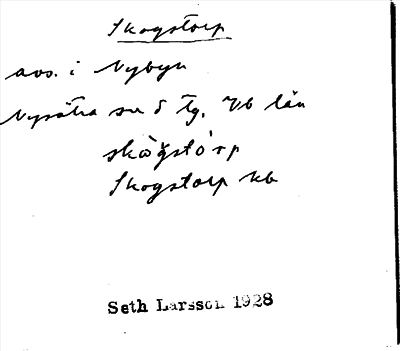 Skogstorp
avs. i Nybyn
Nysätra sn o tg. Vb län
skògstórp
Skogstorp kb
Seth Larsson 1928